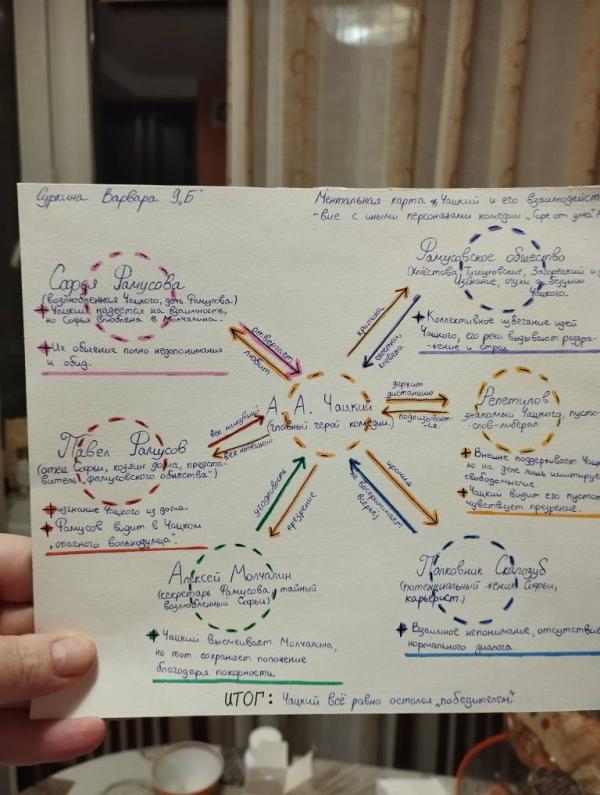 Суркина Варвара 9„Б"
Ментальная карта „Чацкий и его взаимодейст-
-вие с иными персонажами комедии „Горе от ума"
Софья Фамусова
(возлюбленная Чацкого, дочь Фамусова)
+ Чацкий надеется на взаимность,
но Софья влюблена в Молчалина.
+ Их общение полно недопонимания
и обид.
отвергает
любит
Фамусовское общество
(Хлёстова, Тугоуховские, Загорецкий и
Изгнание, слухи о безумии
Чацкого.
+ Коллективное избегание идей
Чацкого, его речи вызывают раздра-
-жение и страх.
критика
сплетни,
клевета
А. А. Чацкий
(главный герой комедии)
держит
дистанцию
подлизывает-
-ся
Репетилов
знакомый Чацкого, пусто-
-слов-либерал
+ Внешне поддерживает Чац
но на деле лишь имитирует
свободомыслие.
+ Чацкий видит его пустот
чувствует презрение.
Павел Фамусов
(отец Софьи, хозяин дома, предста-
витель „фамусовского общества")
+ изгнание Чацкого из дома.
+ Фамусов видит в Чацком
„опасного вольнодумца".
век минувший
век нынешний
угодливость
презрение
Алексей Молчалин
(секретарь Фамусова, тайный
возлюбленный Софьи)
+ Чацкий высмеивает Молчалина,
но тот сохраняет положение
благодаря покорности.
ирония
не воспринимает
всерьёз
Полковник Скалозуб
(потенциальный жених Софьи,
карьерист.)
+ Взаимное непонимание, отсутствие
нормального диалога.
ИТОГ: Чацкий всё равно остался „победителем".